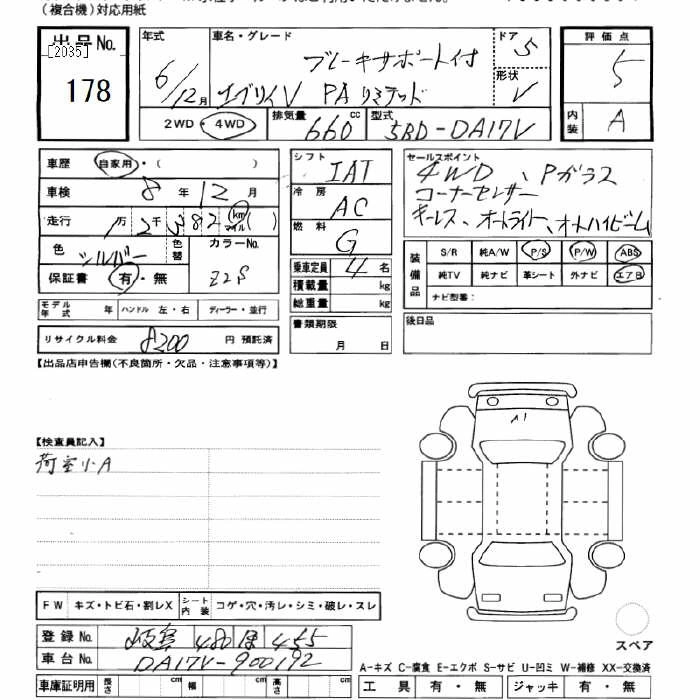 (複合機)対応用紙
出品No.
[2035]
178
年式
6/12月
車名・グレード
ブレーキサポート付
エブリイV PA リミテッド
ドア 5
形状 V
2WD・4WD
排気量 660 cc
型式 5BD-DA17V
評価点
5
内装 A
車歴 自家用・( )
車検 8年 12月
走行 1万2千382 km マイル ( )
色 シルバー 色替 カラーNo. Z2S
保証書 有・無
モデル年式 年 ハンドル 左・右 ディーラー・並行
リサイクル料金 8200 円 預託済
シフト
IAT
冷房
AC
燃料
G
乗車定員 4名
積載量 kg
総重量 kg
書類期限
月 日
セールスポイント
4WD、Pガラス
コーナーセンサー
キーレス、オートライト、オートハイビーム
装備品
S/R 純A/W P/S P/W ABS
純TV 純ナビ 革シート 外ナビ エアB
ナビ型番:
後日品
【出品店申告欄(不良箇所・欠品・注意事項等)】
【検査員記入】
荷室小A
A1
FW キズ・トビ石・割レX シート内装 コゲ・穴・汚レ・シミ・破レ・スレ
登録No. 岐阜 480 ほ 455
車台No. DA17V-900192
車庫証明用 長さ cm 幅 cm 高さ cm
スペア
A-キズ C-腐食 E-エクボ S-サビ U-凹ミ W-補修 XX-交換済
工具 有・無 ジャッキ 有・無